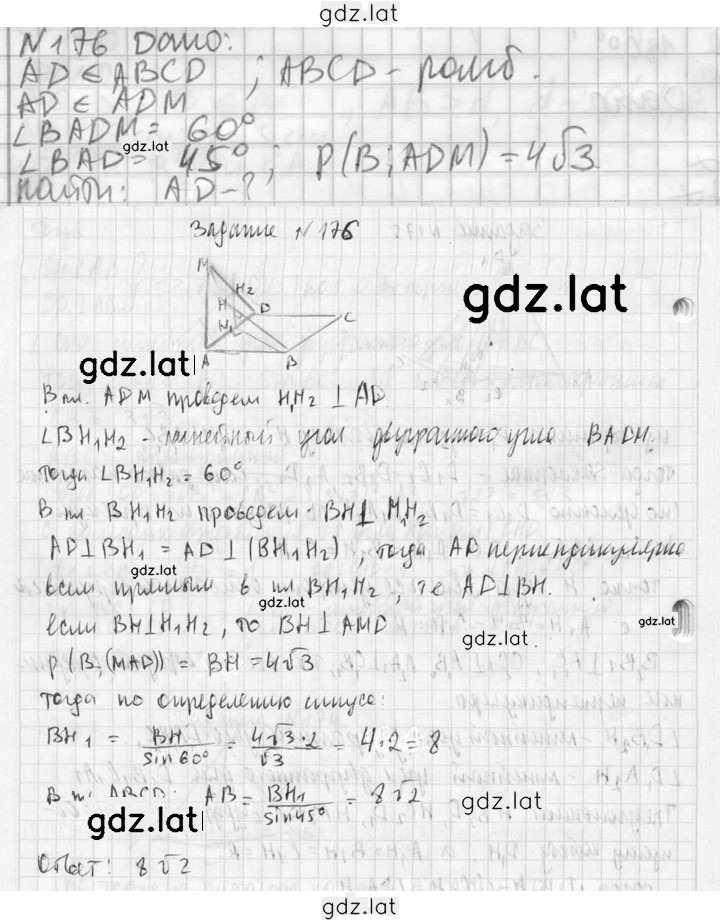 gdz.lat
N176 Дано:
AD ∈ ABCD ; ABCD - ромб.
AD ∈ ADM
∠BADM = 60°
gdz.lat
∠BAD = 45° ; ρ(B; ADM) = 4√3
найти: AD - ?
Задание N176
M
H2
H D C
H1
A B
gdz.lat
gdz.lat
В пл. ADM проведем H1H2 ⊥ AD.
∠BH1H2 - линейный угол двугранного угла BADM,
тогда ∠BH1H2 = 60°
В пл. BH1H2 проведем BH ⊥ H1H2
AD ⊥ BH1 = AD ⊥ (BH1H2), тогда AD перпендикулярно
gdz.lat
всем прямым в пл. BH1H2, т.е AD ⊥ BH.
gdz.lat
если BH ⊥ H1H2, то BH ⊥ AMD
gdz.lat
gdz.lat
ρ(B; (MAD)) = BH = 4√3
тогда по определению синуса:
BH1 = BH/sin60° = 4√3·2/√3 = 4·2 = 8
ABCD: AB = BH1/sin45° = 8√2
gdz.lat
gdz.lat
Ответ: 8√2
gdz.lat